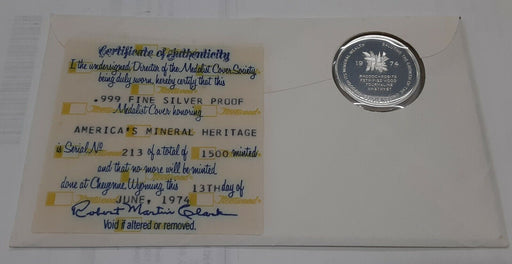 Certificate of Authenticity
I the undersigned, Director of the Medalist Cover Society
being duly sworn, hereby certify that this
.999 FINE SILVER PROOF
Medalist Cover honoring
AMERICA'S MINERAL HERITAGE
is Serial No. 213 of a total of 1500 minted
and that no more will be minted.
done at Cheyenne, Wyoming, this 13TH day of
JUNE, 1974
Robert Martin Clark
Void if altered or removed.
1974
RHODOCHROSITE
PETRIFIED WOOD
TOURMALINE
AMETHYST